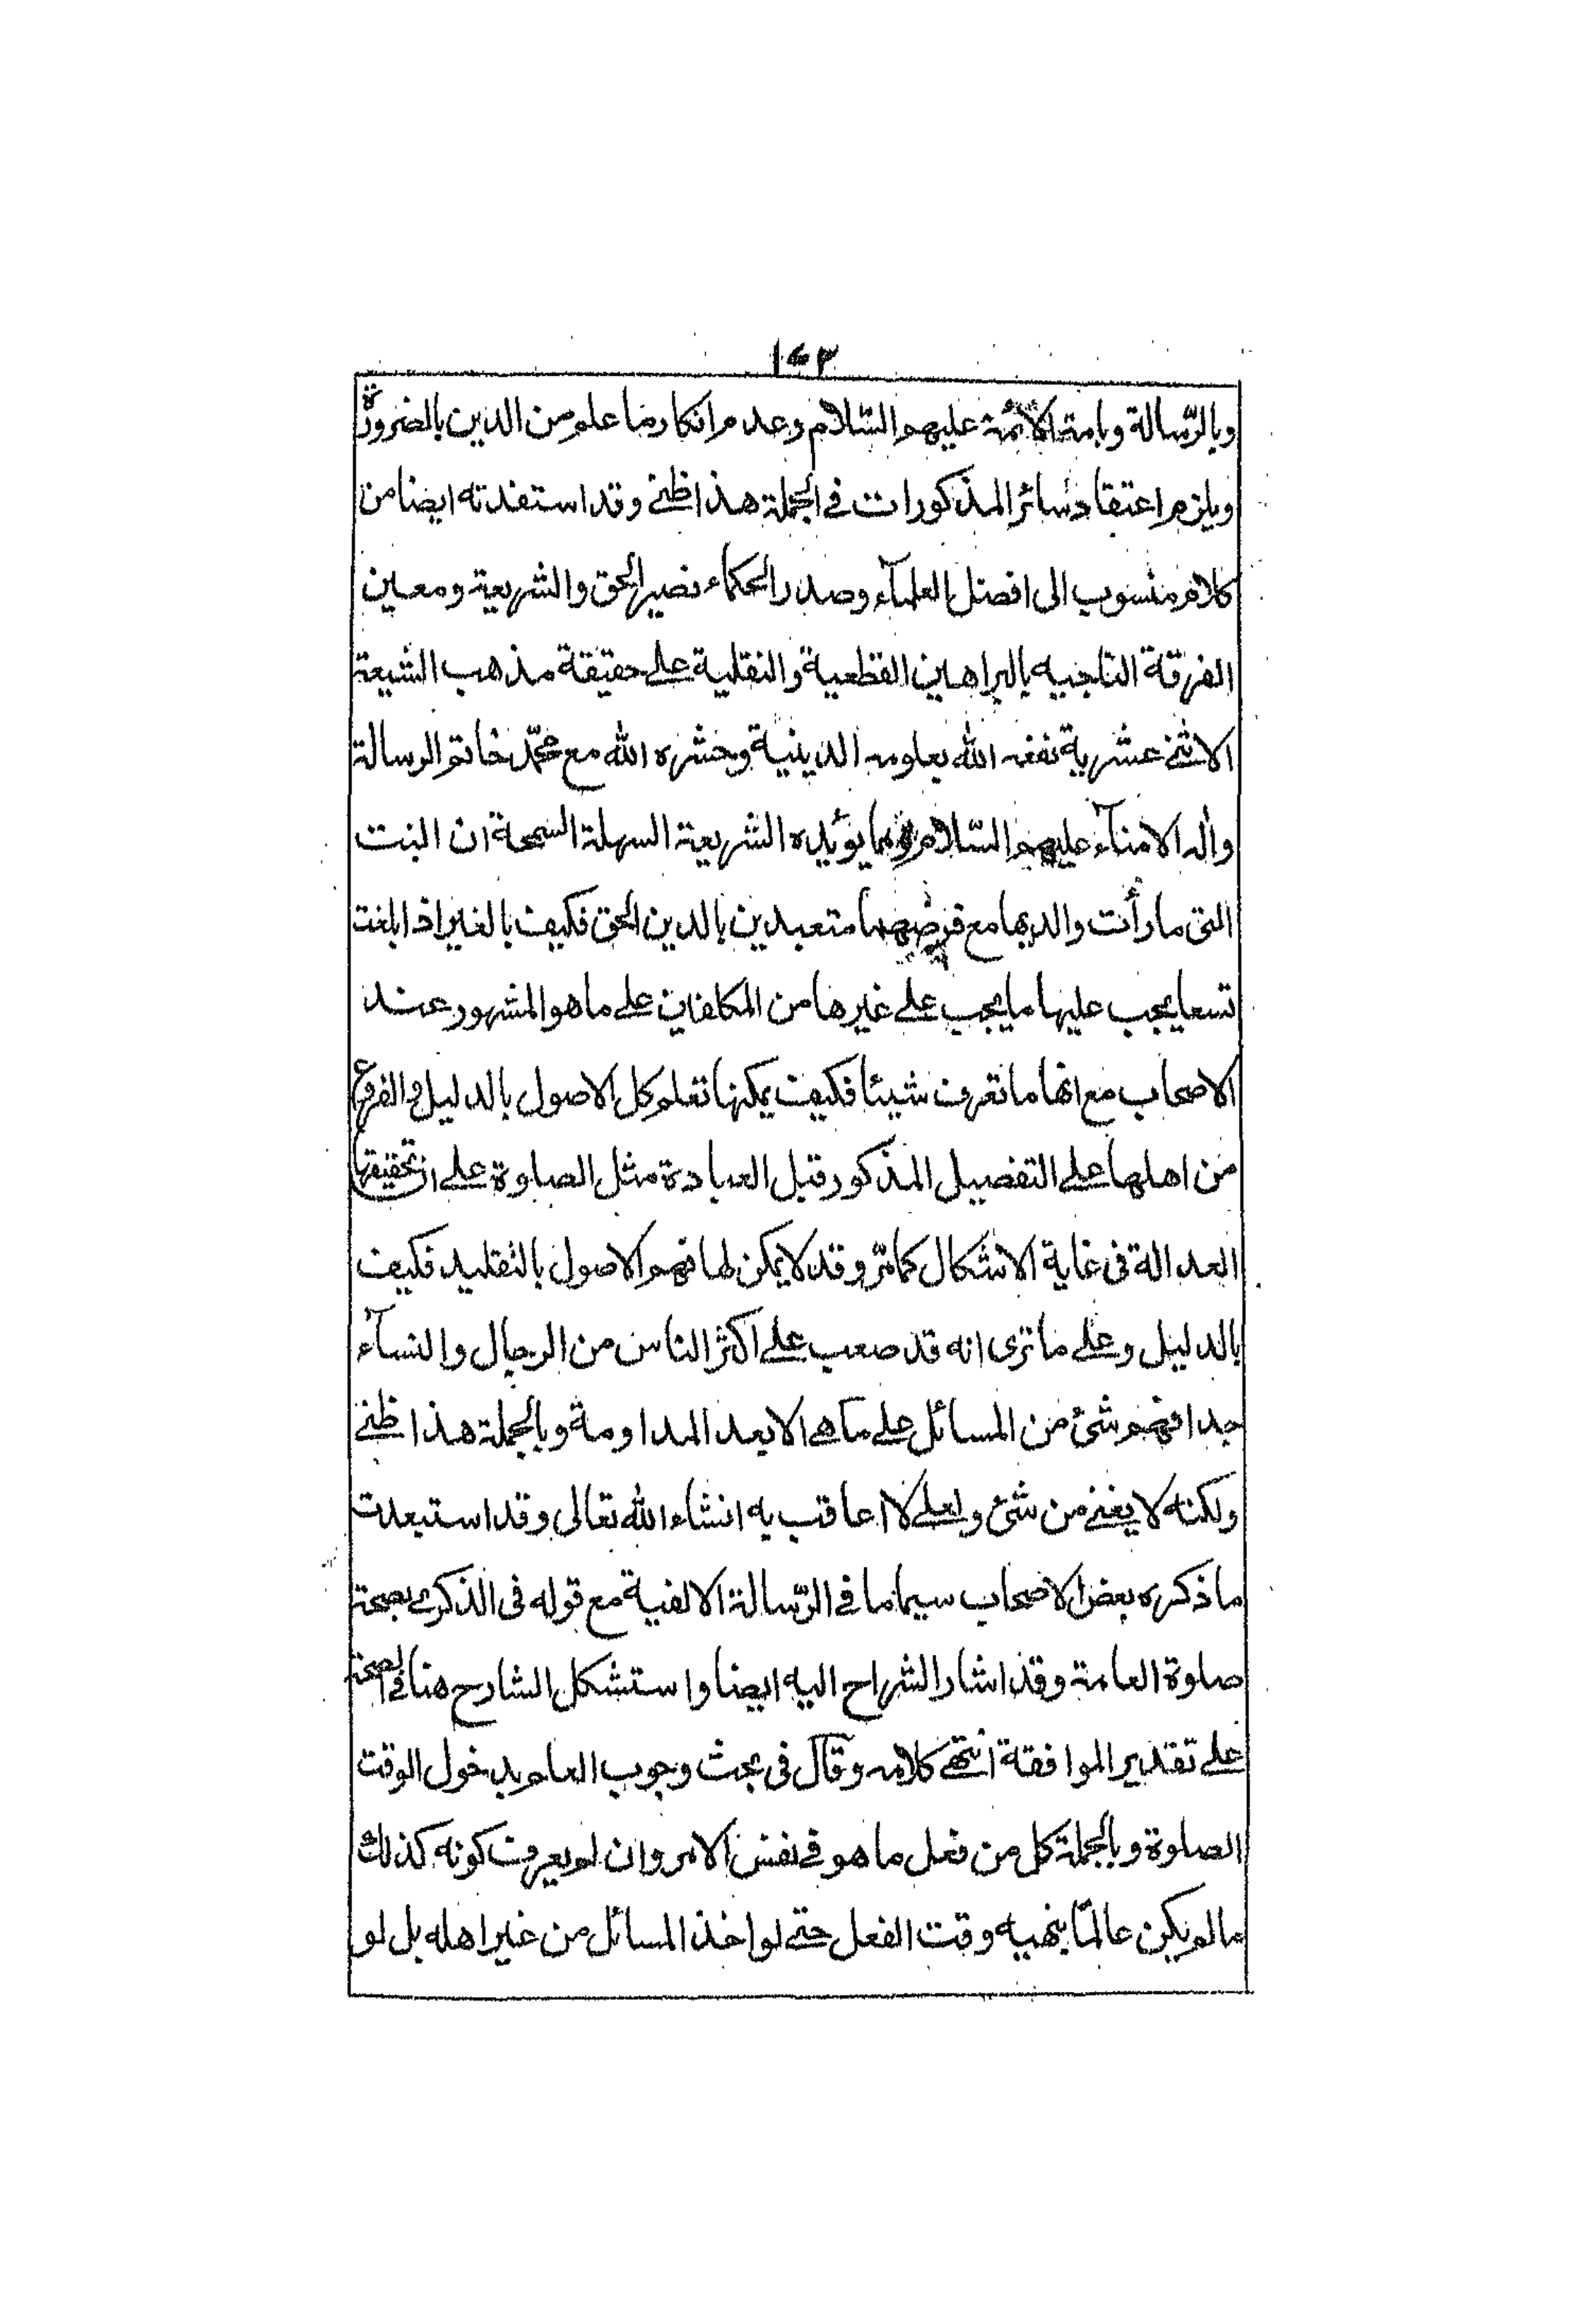 ١٤٣
وبالرّسالة وبامة الأئمة عليهم السّلام وعدم انكار ما علم من الدين بالضرورة
ويلزم اعتقاد سائر المذكورات في الجملة هذا ظني وقد استفدته ايضا من
كلام منسوب الى افضل العلمآء وصدر الحكماء نصير الحق والشريعة ومعين
الفرقة الناجيه بالبراهين القطعية والنقلية على حقيقة مذهب الشيعة
الاثني عشرية نفعه الله بعلومه الدينية وحشره الله مع محمّد خاتم الرسالة
واله الامنآء عليهم السّلام ومما يؤيده الشريعة السهلة السمحة ان البنت
التى ما رأت والديها مع فرضهما متعبدين بالدين الحق فكيف بالغير اذا بلغت
تسعا يجب عليها ما يجب على غيرها من المكلفين على ما هو المشهور عند
الاصحاب مع انها ما تعرف شيئا فكيف يمكنها تعلم كل الاصول بالدليل والفروع
من اهلها على التفصيل المذكور قبل العبادة مثل الصلوة على ان تحقيقها
العدالة فى غاية الاشكال كما مرّ وقد لا يمكن لها فهم الاصول بالتقليد فكيف
بالدليل وعلى ما ترى انه قد صعب على اكثر الناس من الرجال والنسآء
جدا فهم شئ من المسائل على ما هي الا بعد المداومة وبالجملة هذا ظني
ولكنه لا يغني من شئ ولعلي لا اعاقب به انشاء الله تعالى وقد استبعدت
ما ذكره بعض الاصحاب سيما ما في الرّسالة الالفية مع قوله فى الذكرى بصحة
صلوة العامة وقد اشار الشراح اليه ايضا واستشكل الشارح هنا في الصحة
على تقدير الموافقة انتهى كلامه وقال فى بحث وجوب العلم بدخول الوقت
الصلوة وبالجملة كل من فعل ما هو في نفس الامر وان لم يعرف كونه كذلك
ما لم يكن عالمّا بنهيه وقت الفعل حتى لو اخذ المسائل من غير اهله بل لو